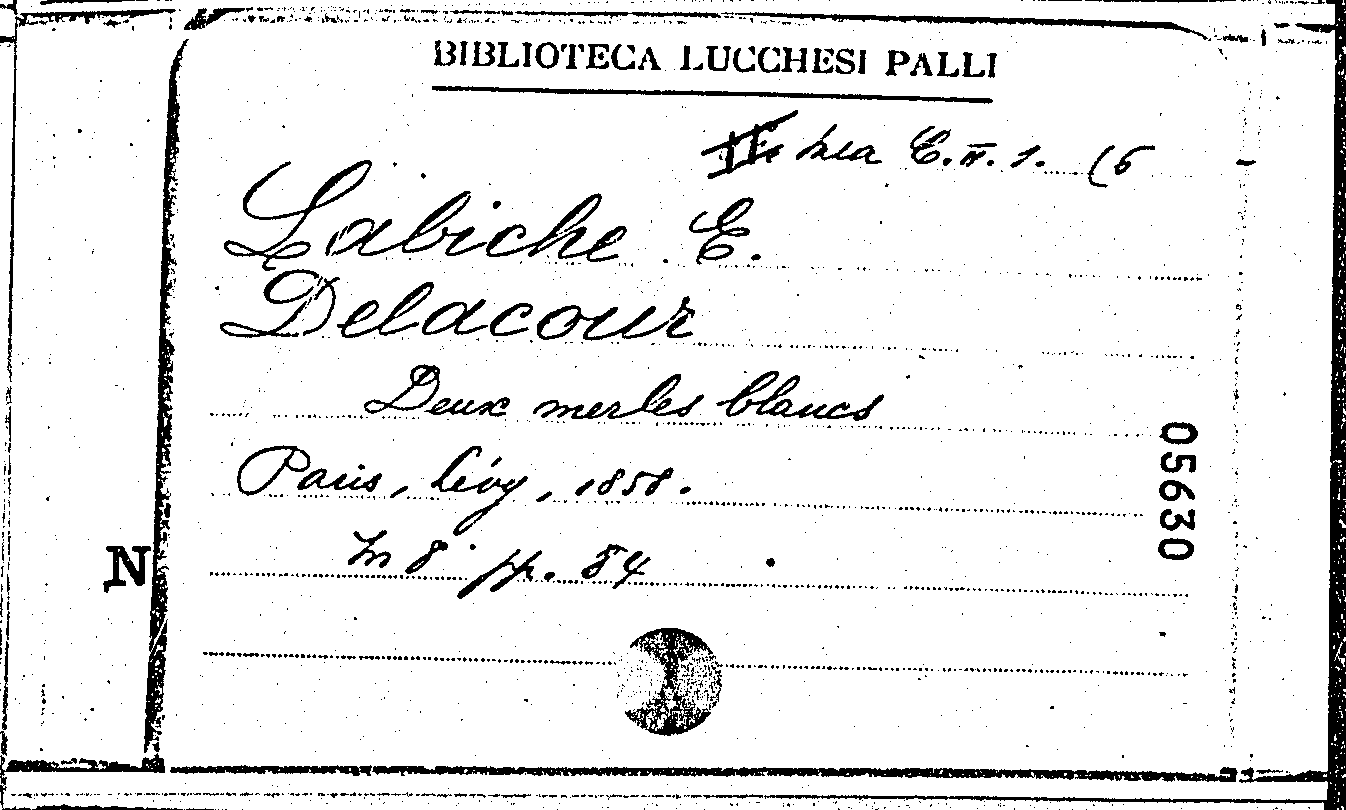 BIBLIOTECA LUCCHESI PALLI
C. II. 1. (5
Labiche E.
Delacour
Deux merles blancs
Paris, Lévy, 1858.
In 8° pp. 84
05630
N